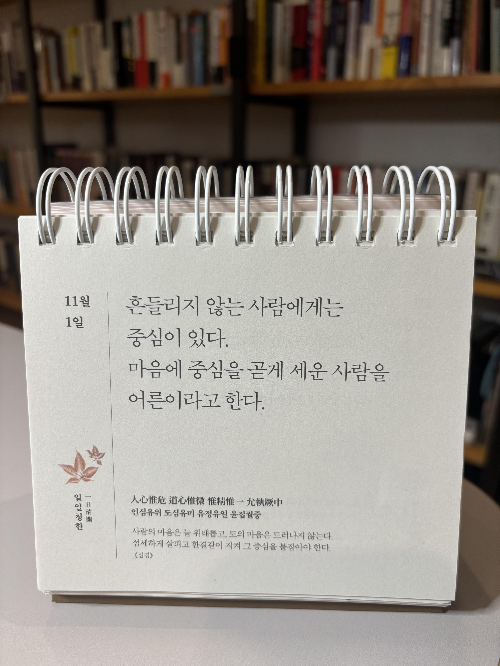 11월
1일
흔들리지 않는 사람에게는
중심이 있다.
마음에 중심을 곧게 세운 사람을
어른이라고 한다.
일일청한
一日淸閑
人心惟危 道心惟微 惟精惟一 允執厥中
인심유위 도심유미 유정유일 윤집궐중
사람의 마음은 늘 위태롭고, 도의 마음은 드러나지 않는다.
섬세하게 살피고 한결같이 지켜 그 중심을 붙잡아야 한다.
《심경》